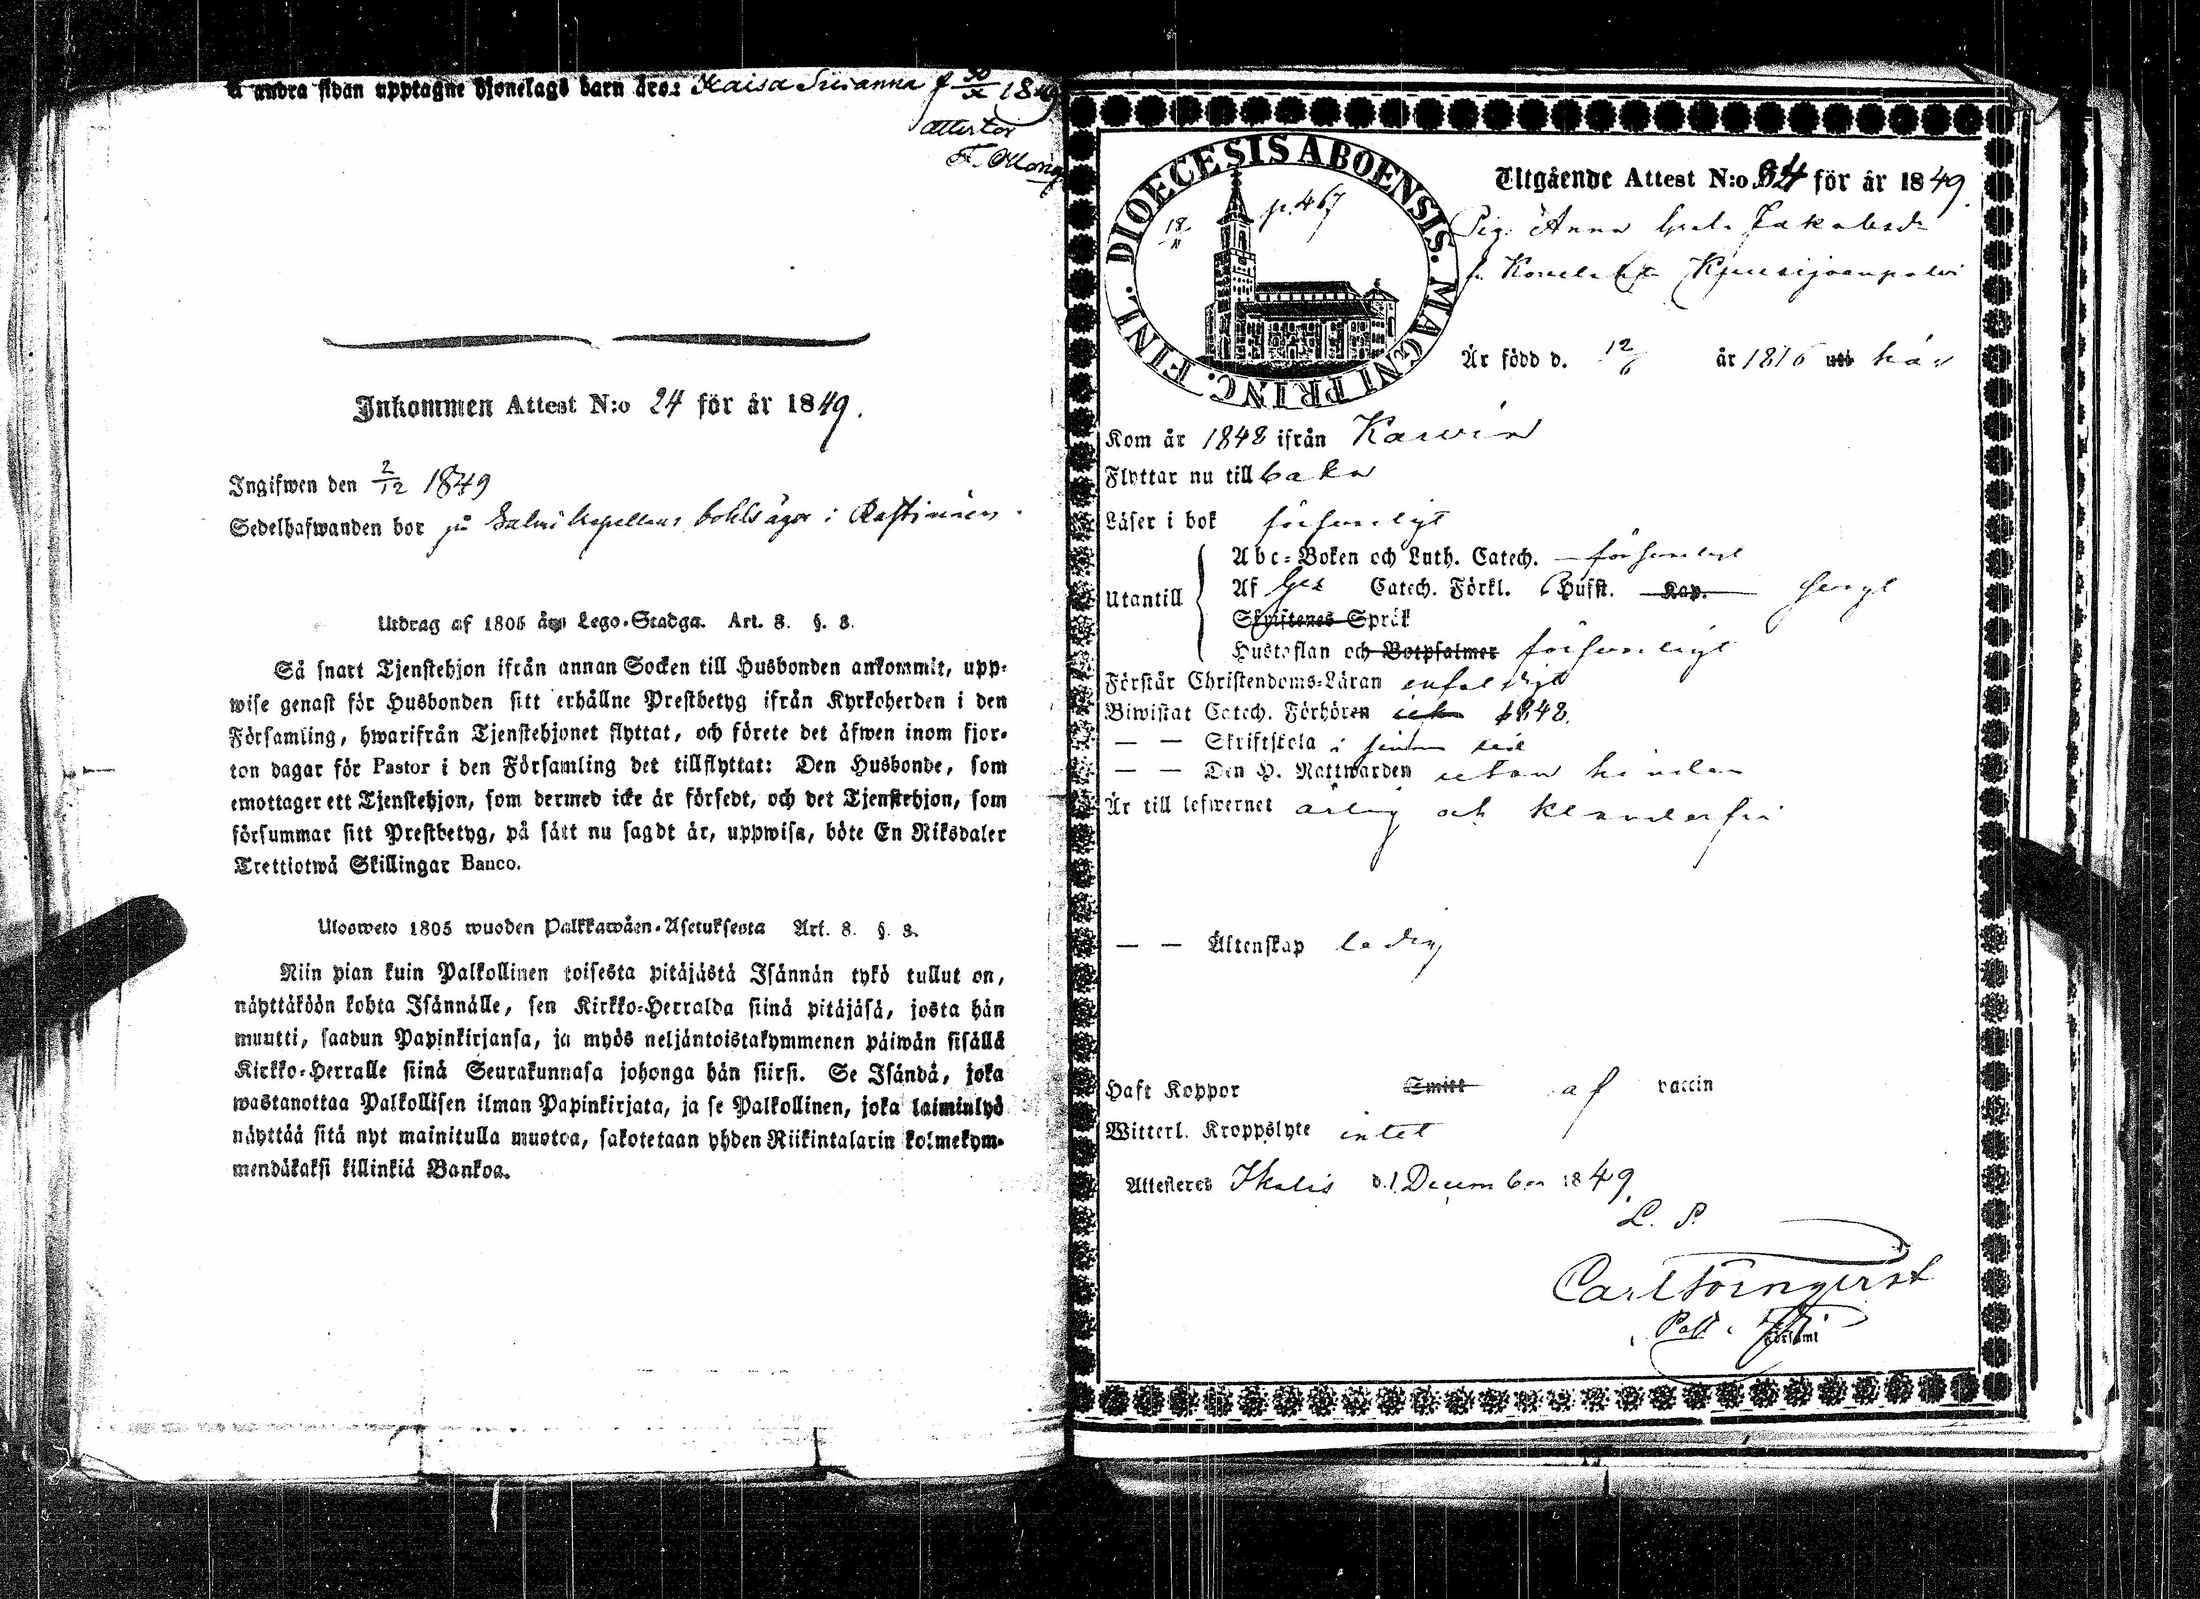 å andra sidan upptagne hjonelags barn äro: Kaisa Susanna f 30/X 1849
attesterar
Inkommen Attest N:o 24 för år 1849.
Ingifwen den 2/12 1849
Sedelhafwanden bor på Salmi kapellans bohls ägor i
Utdrag af 1805 års Lego-Stadga. Art. 8. §. 8.
Så snart Tjenstehjon ifrån annan Socken till Husbonden ankommit, upp-
wise genast för Husbonden sitt erhållne Prestbetyg ifrån Kyrkoherden i den
Församling, hwarifrån Tjenstehjonet flyttat, och förete det äfwen inom fjor-
ton dagar för Pastor i den Församling det tillflyttat: Den Husbonde, som
emottager ett Tjenstehjon, som dermed icke är försedt, och det Tjenstehjon, som
försummar sitt Prestbetyg, på sätt nu sagdt är, uppwisa, böte En Riksdaler
Trettiotwå Skillingar Banco.
Ulosweto 1805 wuoden Palkkawäen-Asetuksesta Art. 8. §. 8.
Niin pian kuin Palkollinen toisesta pitäjästä Isännän tykö tullut on,
näyttäköön kohta Isännälle, sen Kirkko-Herralda siinä pitäjäsä, josta hän
muutti, saadun Papinkirjansa, ja myös neljäntoistakymmenen päiwän sisällä
Kirkko-Herralle siinä Seurakunnasa johonga hän siirsi. Se Isändä, joka
wastanottaa Palkollisen ilman Papinkirjata, ja se Palkollinen, joka laiminlyö
näyttää sitä nyt mainitulla muotoa, sakotetaan yhden Riikintalarin kolmekym-
mendäkaksi killinkiä Bankoa.
DIOECESIS ABOENSIS. MAGNI PRINC. FINL.
18/11 p. 467
Utgående Attest N:o 84 för år 1849.
Pig. Anna Greta Jakobsd:r
Är född d. 12/6 år 1816 uti här
Kom år 1848 ifrån Karvia
Flyttar nu till baka
Läser i bok försvarligt
Abc-Boken och Luth. Catech. försvarligt
Utantill
Af Catech. Förkl. Hufst. Kap.
Skriftenes Språk
Hustaflan och Botpsalmer försvarligt
Förstår Christendoms-Läran enfaldigt
Biwistat Catech. Förhören 1848.
— — Skriftskola i sinom tid
— — Den H. Nattwarden utan hinder
Är till lefwernet ärlig och klanderfri
— — Äktenskap ledig
Haft Koppor Smitt af vaccin
Witterl. Kroppslyte intet
Attesteras Ikalis d. 1 December 1849.
L. P.
Carl Törnqvist
Församl